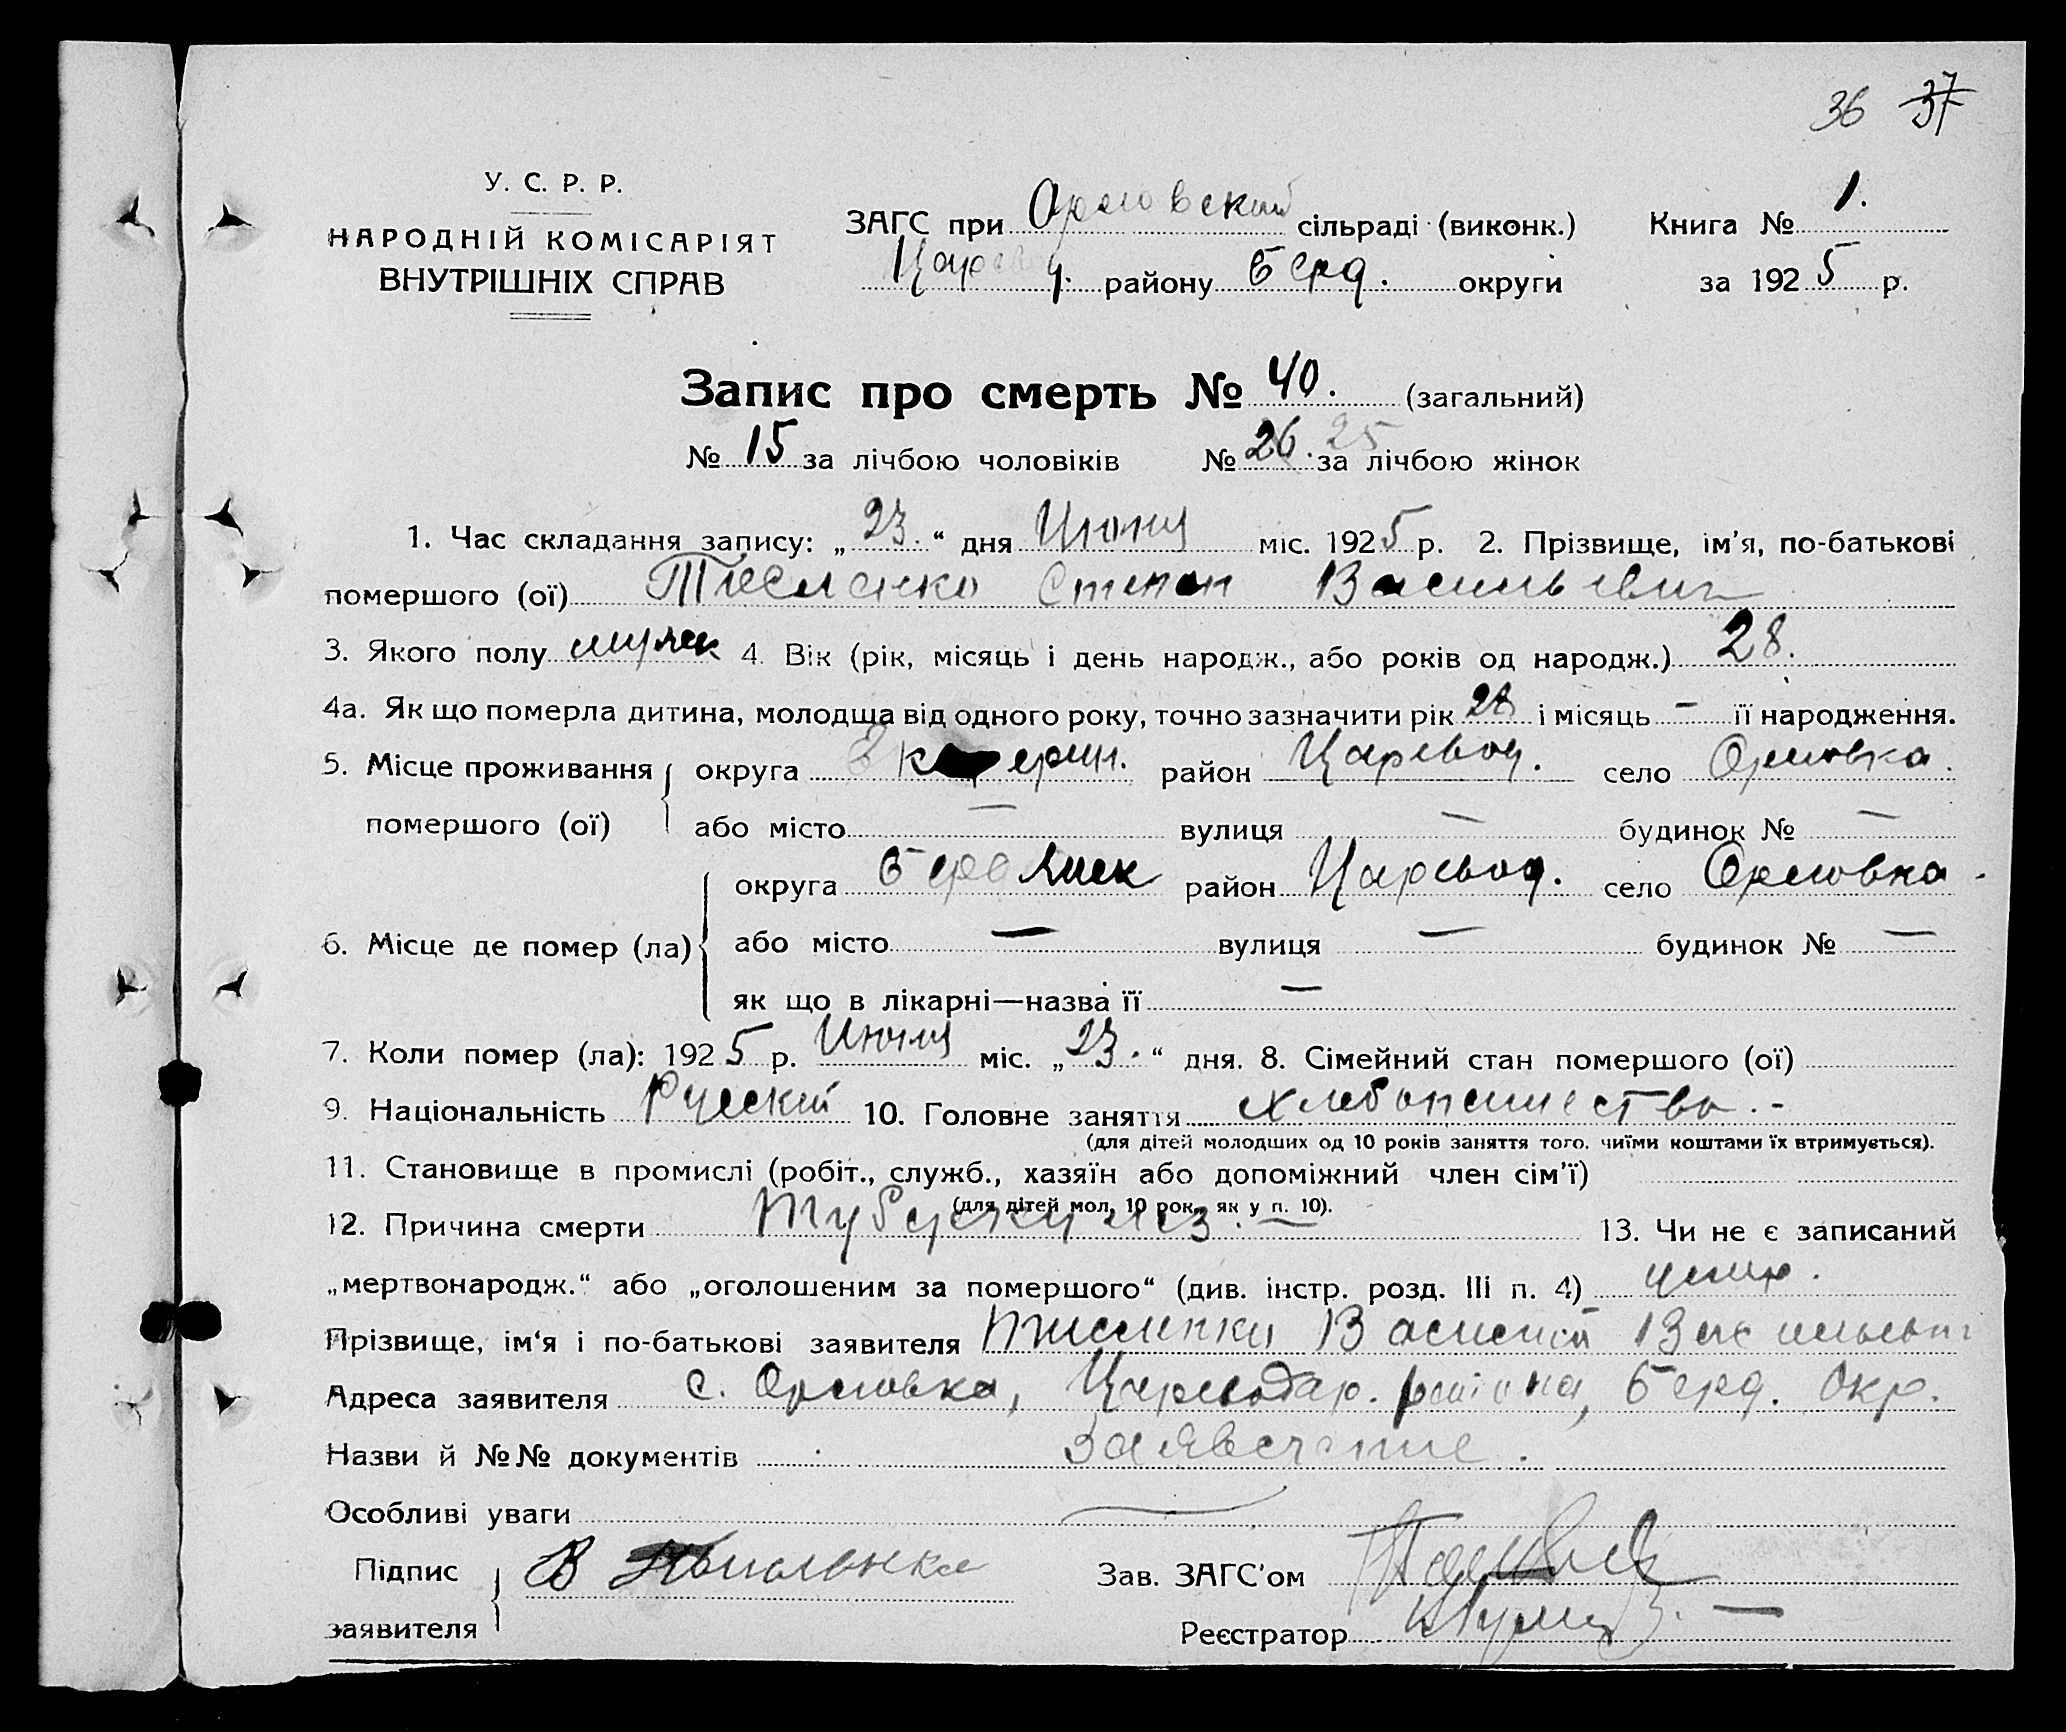 36 37
У. С. Р. Р.
НАРОДНІЙ КОМІСАРІЯТ
ВНУТРІШНІХ СПРАВ
ЗАГС при Орловский сільраді (виконк.)
Царев. району Берд. округи
Книга № 1.
за 1925 р.
Запис про смерть № 40. (загальний)
№ 15 за лічбою чоловіків № 26. 25 за лічбою жінок
1. Час складання запису: „23.“ дня Июня міс. 1925 р. 2. Прізвище, ім'я, по-батькові
помершого (ої) Тесленко Степан Васильевич
3. Якого полу мужск 4. Вік (рік, місяць і день народж., або років од народж.) 28.
4а. Як що померла дитина, молодща від одного року, точно зазначити рік 28 і місяць — її народження.
5. Місце проживання округа район Царевод. село Орловка.
помершого (ої) або місто — вулиця — будинок № —
округа Бердянск район Царевод. село Орловка.
6. Місце де помер (ла) або місто — вулиця — будинок № —
як що в лікарні—назва її —
7. Коли помер (ла): 1925 р. міс. „23.“ дня. 8. Сімейний стан помершого (ої)
9. Національність Русский 10. Головне заняття хлебопашество.-
(для дітей молодших од 10 років заняття того, чиїми коштами їх втримується).
11. Становище в промислі (робіт., служб., хазяїн або допоміжний член сім'ї)
(для дітей мол. 10 рок., як у п. 10).
12. Причина смерти Туберкулез. — 13. Чи не є записаний
„мертвонародж.“ або „оголошеним за помершого“ (див. інстр. розд. III п. 4) умер.
Прізвище, ім'я і по-батькові заявителя Василий Васильевич
Адреса заявителя с. Орловка, Цареводар. района, Берд. Окр.
Назви й №№ документів Заявление.
Особливі уваги —
Підпис
заявителя В
Зав. ЗАГС'ом
Реєстратор